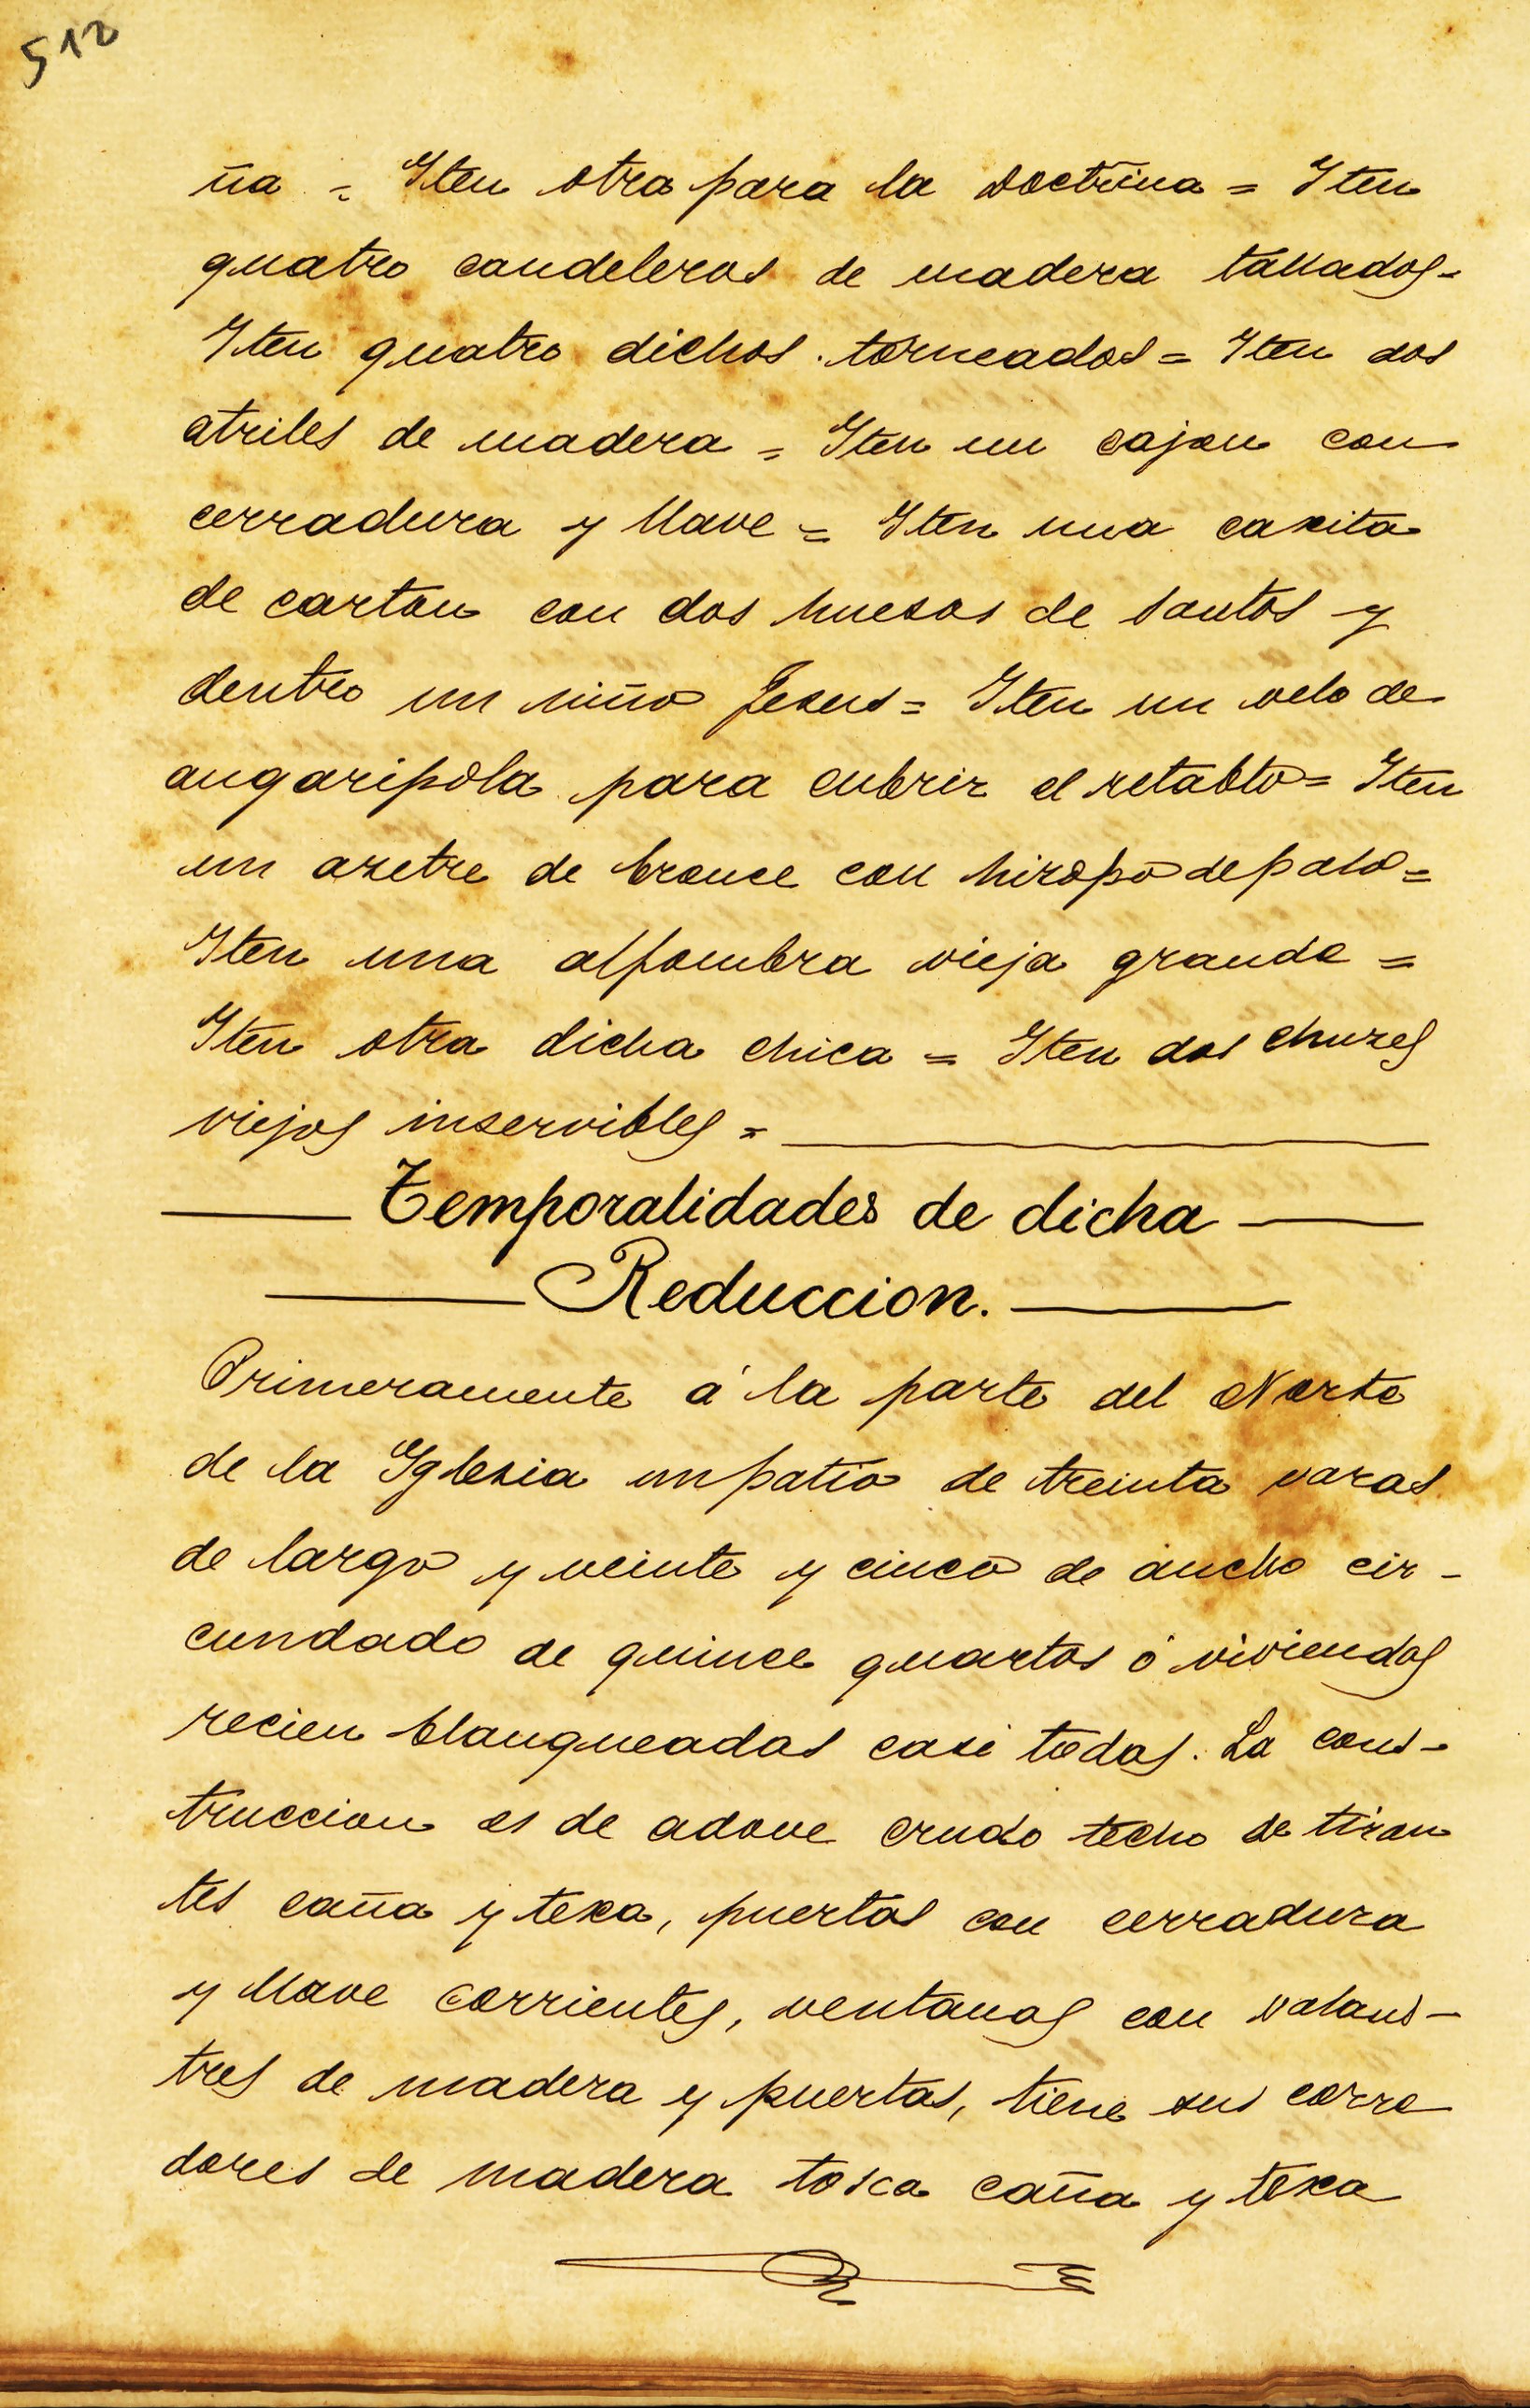 512
ña = Iten otra para la Doctrina = Iten
quatro candeleros de madera tallados=
Iten quatro dichos torneados = Iten dos
atriles de madera = Iten un cajon con
cerradura y llave = Iten una caxita
de carton con dos huesos de santos y
dentro un niño Jesus = Iten un velo de
angaripola para cubrir el retablo = Iten
un azetre de bronce con hizopo de palo =
Iten una alfombra vieja grande =
Iten otra dicha chica = Iten dos chuzes
viejos inservibles =
Temporalidades de dicha
Reduccion.
Primeramente á la parte del Norte
de la Iglesia un patio de treinta varas
de largo y veinte y cinco de ancho cir-
cundado de quince quartos ó viviendas
recien blanqueadas casi todas. La cons-
truccion es de adove crudo techo de tiran
tes caña y texa, puertas con cerradura
y llave corrientes, ventanas con valaus-
tres de madera y puertas, tiene sus corre
dores de madera tosca caña y texa